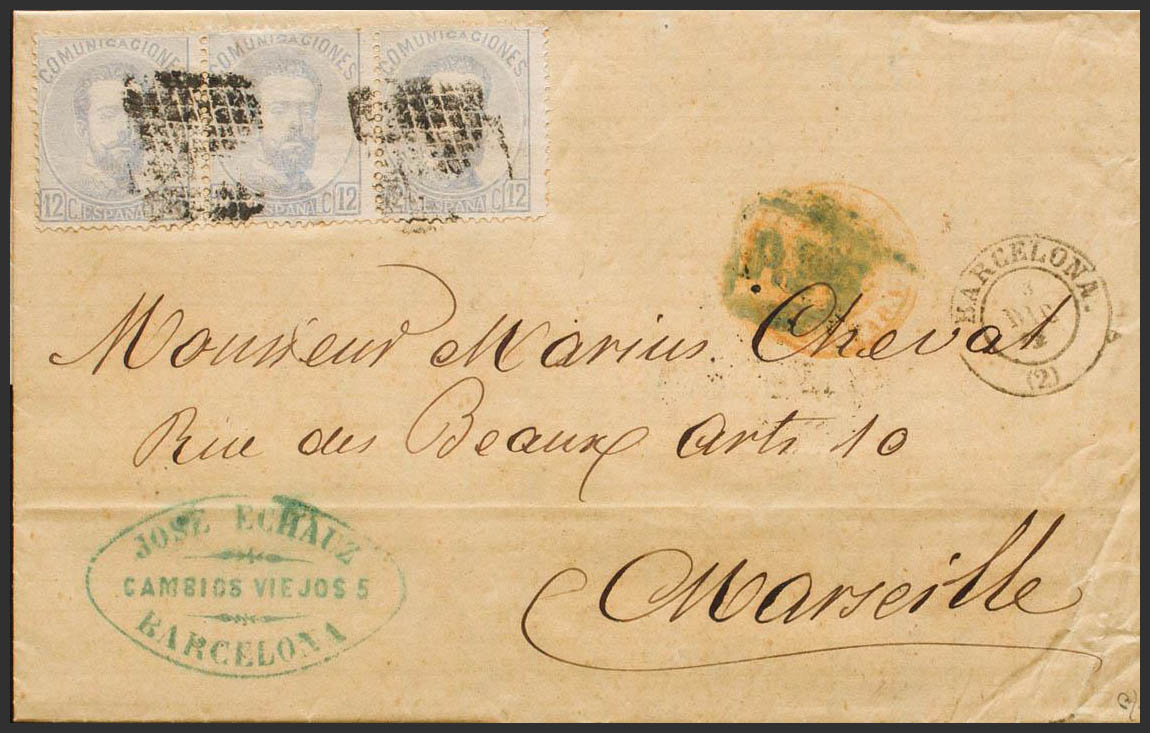 COMUNICACIONES COMUNICACIONES COMUNICACIONES
12 C. ESPAÑA C. 12 C. ESPAÑA C. 12 C. ESPAÑA C. 12
BARCELONA.
3
DIC
(2)
Monsieur Marius Cheval
Rue des Beaux Arts 10
Marseille
JOSÉ ECHAUZ
CAMBIOS VIEJOS 5
BARCELONA